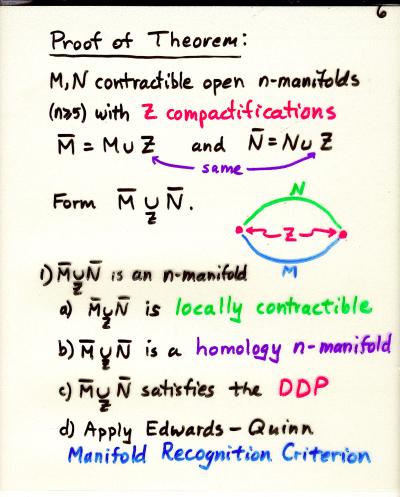 6
Proof of Theorem:
M, N contractible open n-manifolds
(n≥5) with Z compactifications
M̅ = M ∪ Z and N̅ = N ∪ Z
same
Form M̅ ∪_Z N̅.
N
Z
M
1) M̅ ∪_Z N̅ is an n-manifold
a) M̅ ∪_Z N̅ is locally contractible
b) M̅ ∪_Z N̅ is a homology n-manifold
c) M̅ ∪_Z N̅ satisfies the DDP
d) Apply Edwards-Quinn
Manifold Recognition Criterion